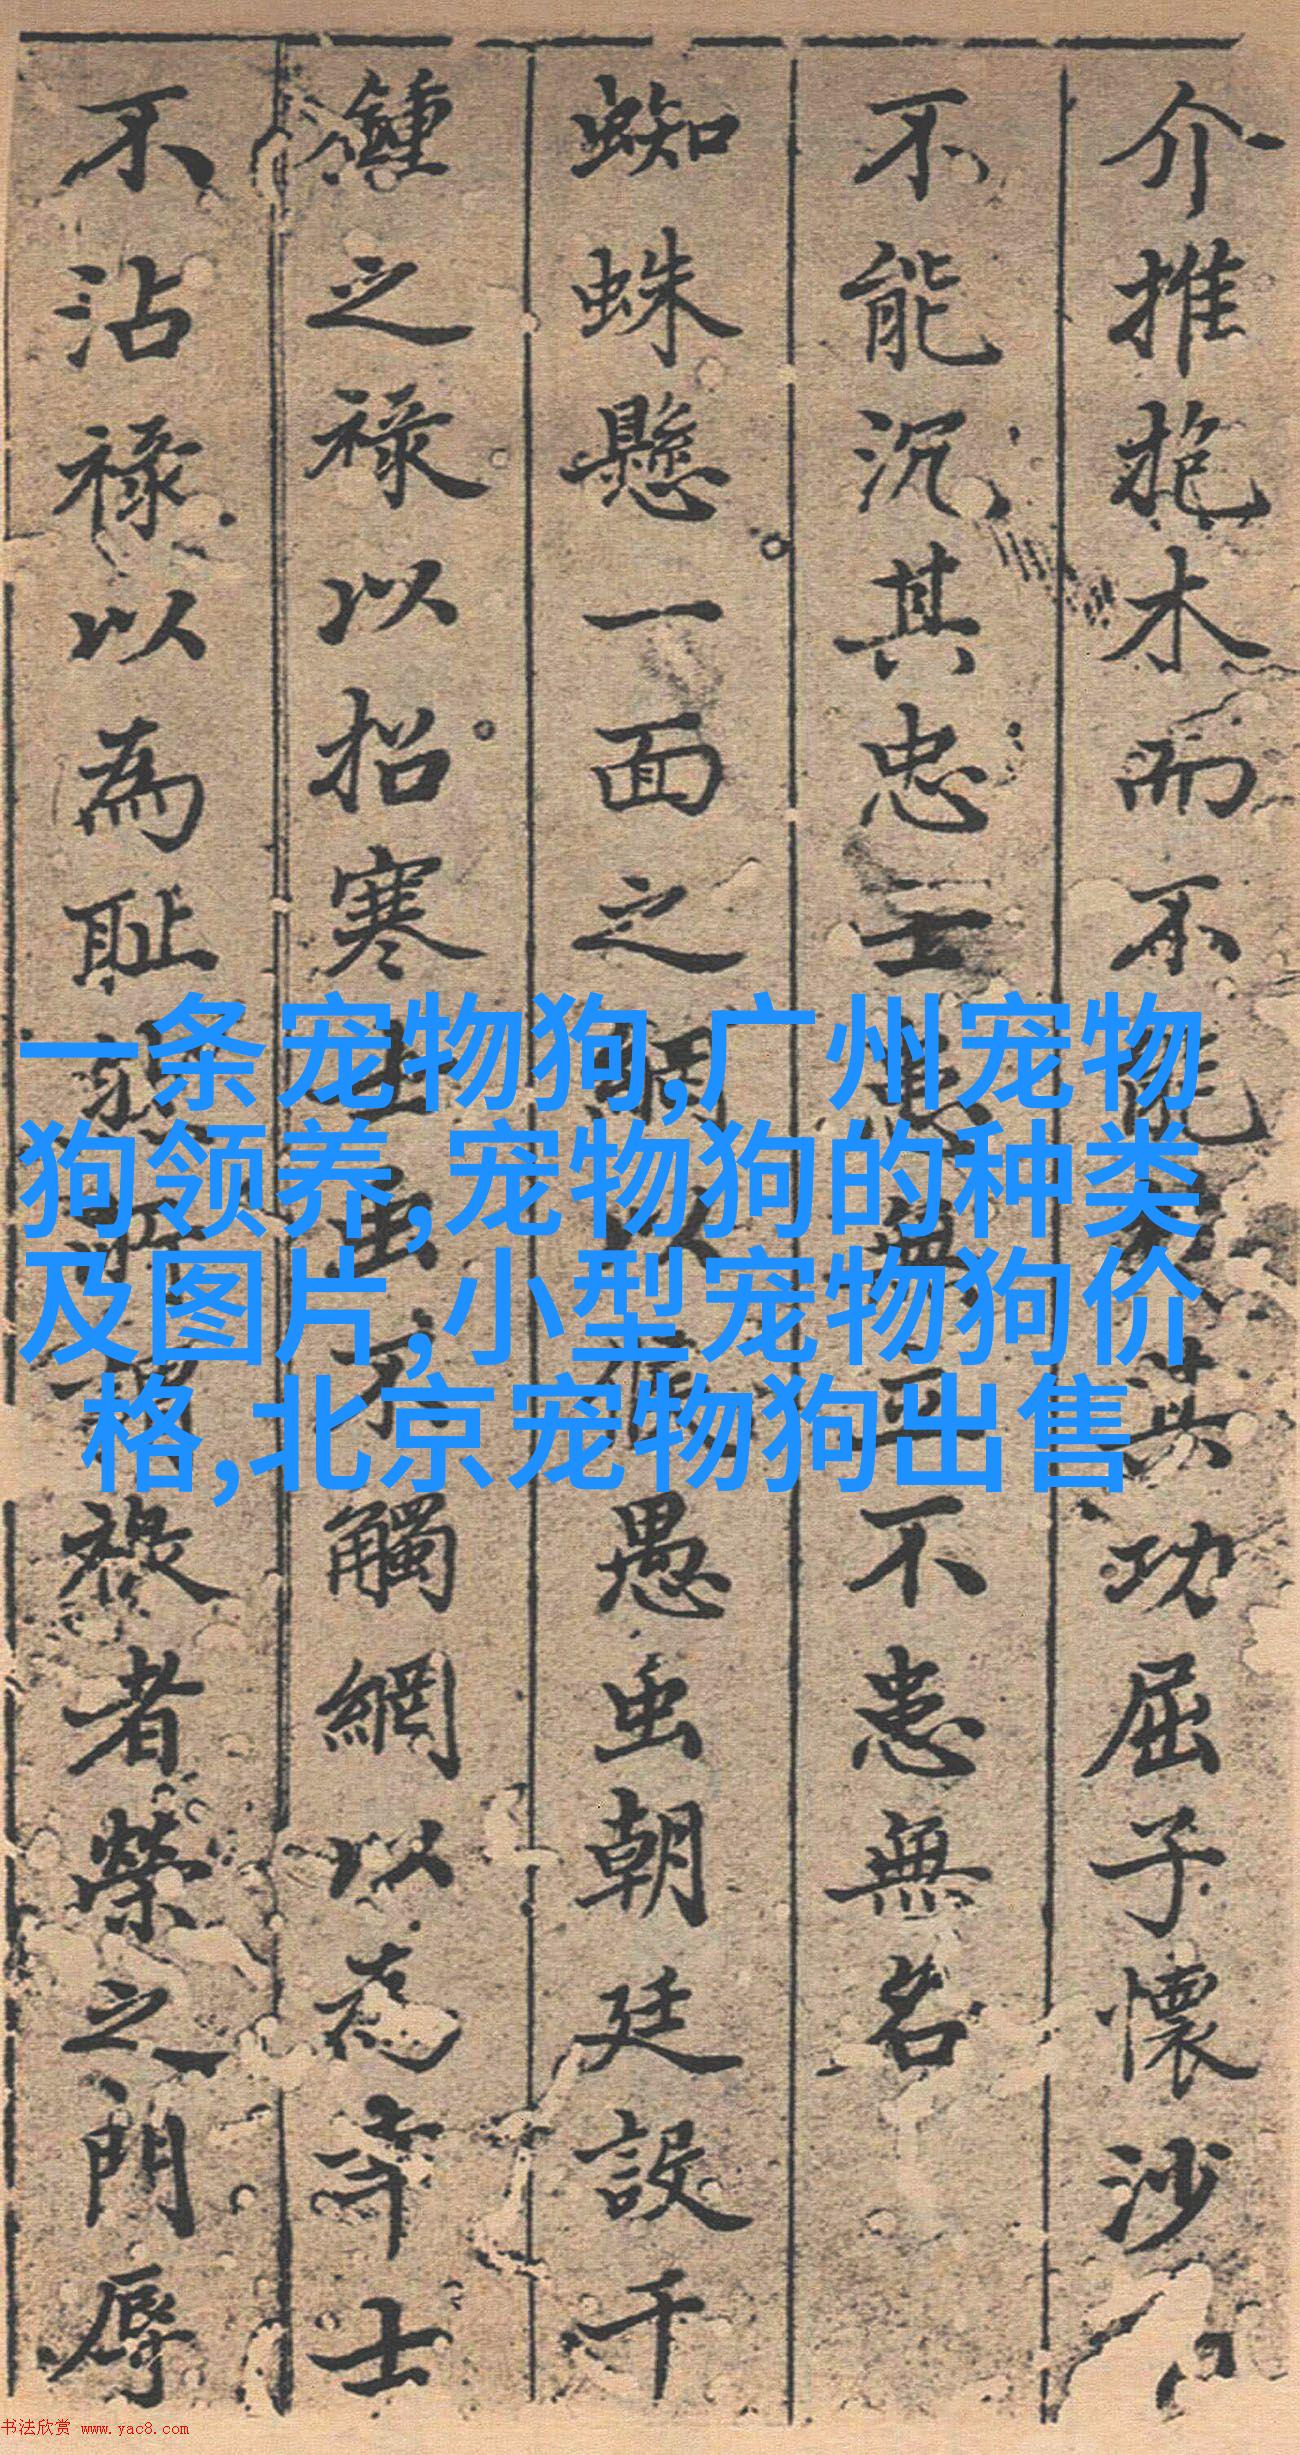 介推抱木而不能共功屈子懷沙
不能沉其忠士患無正不患無名
蜘蛛懸一面之網以愚虫朝廷設千
鍾之祿以招寒士虫不觸網以為
不沾祿以為耻祿者榮之門辱
一条宠物狗,广州宠物
狗领养,宠物狗的种类
及图片,小型宠物狗价
格,北京宠物狗出售
书法欣赏 www.yac8.com